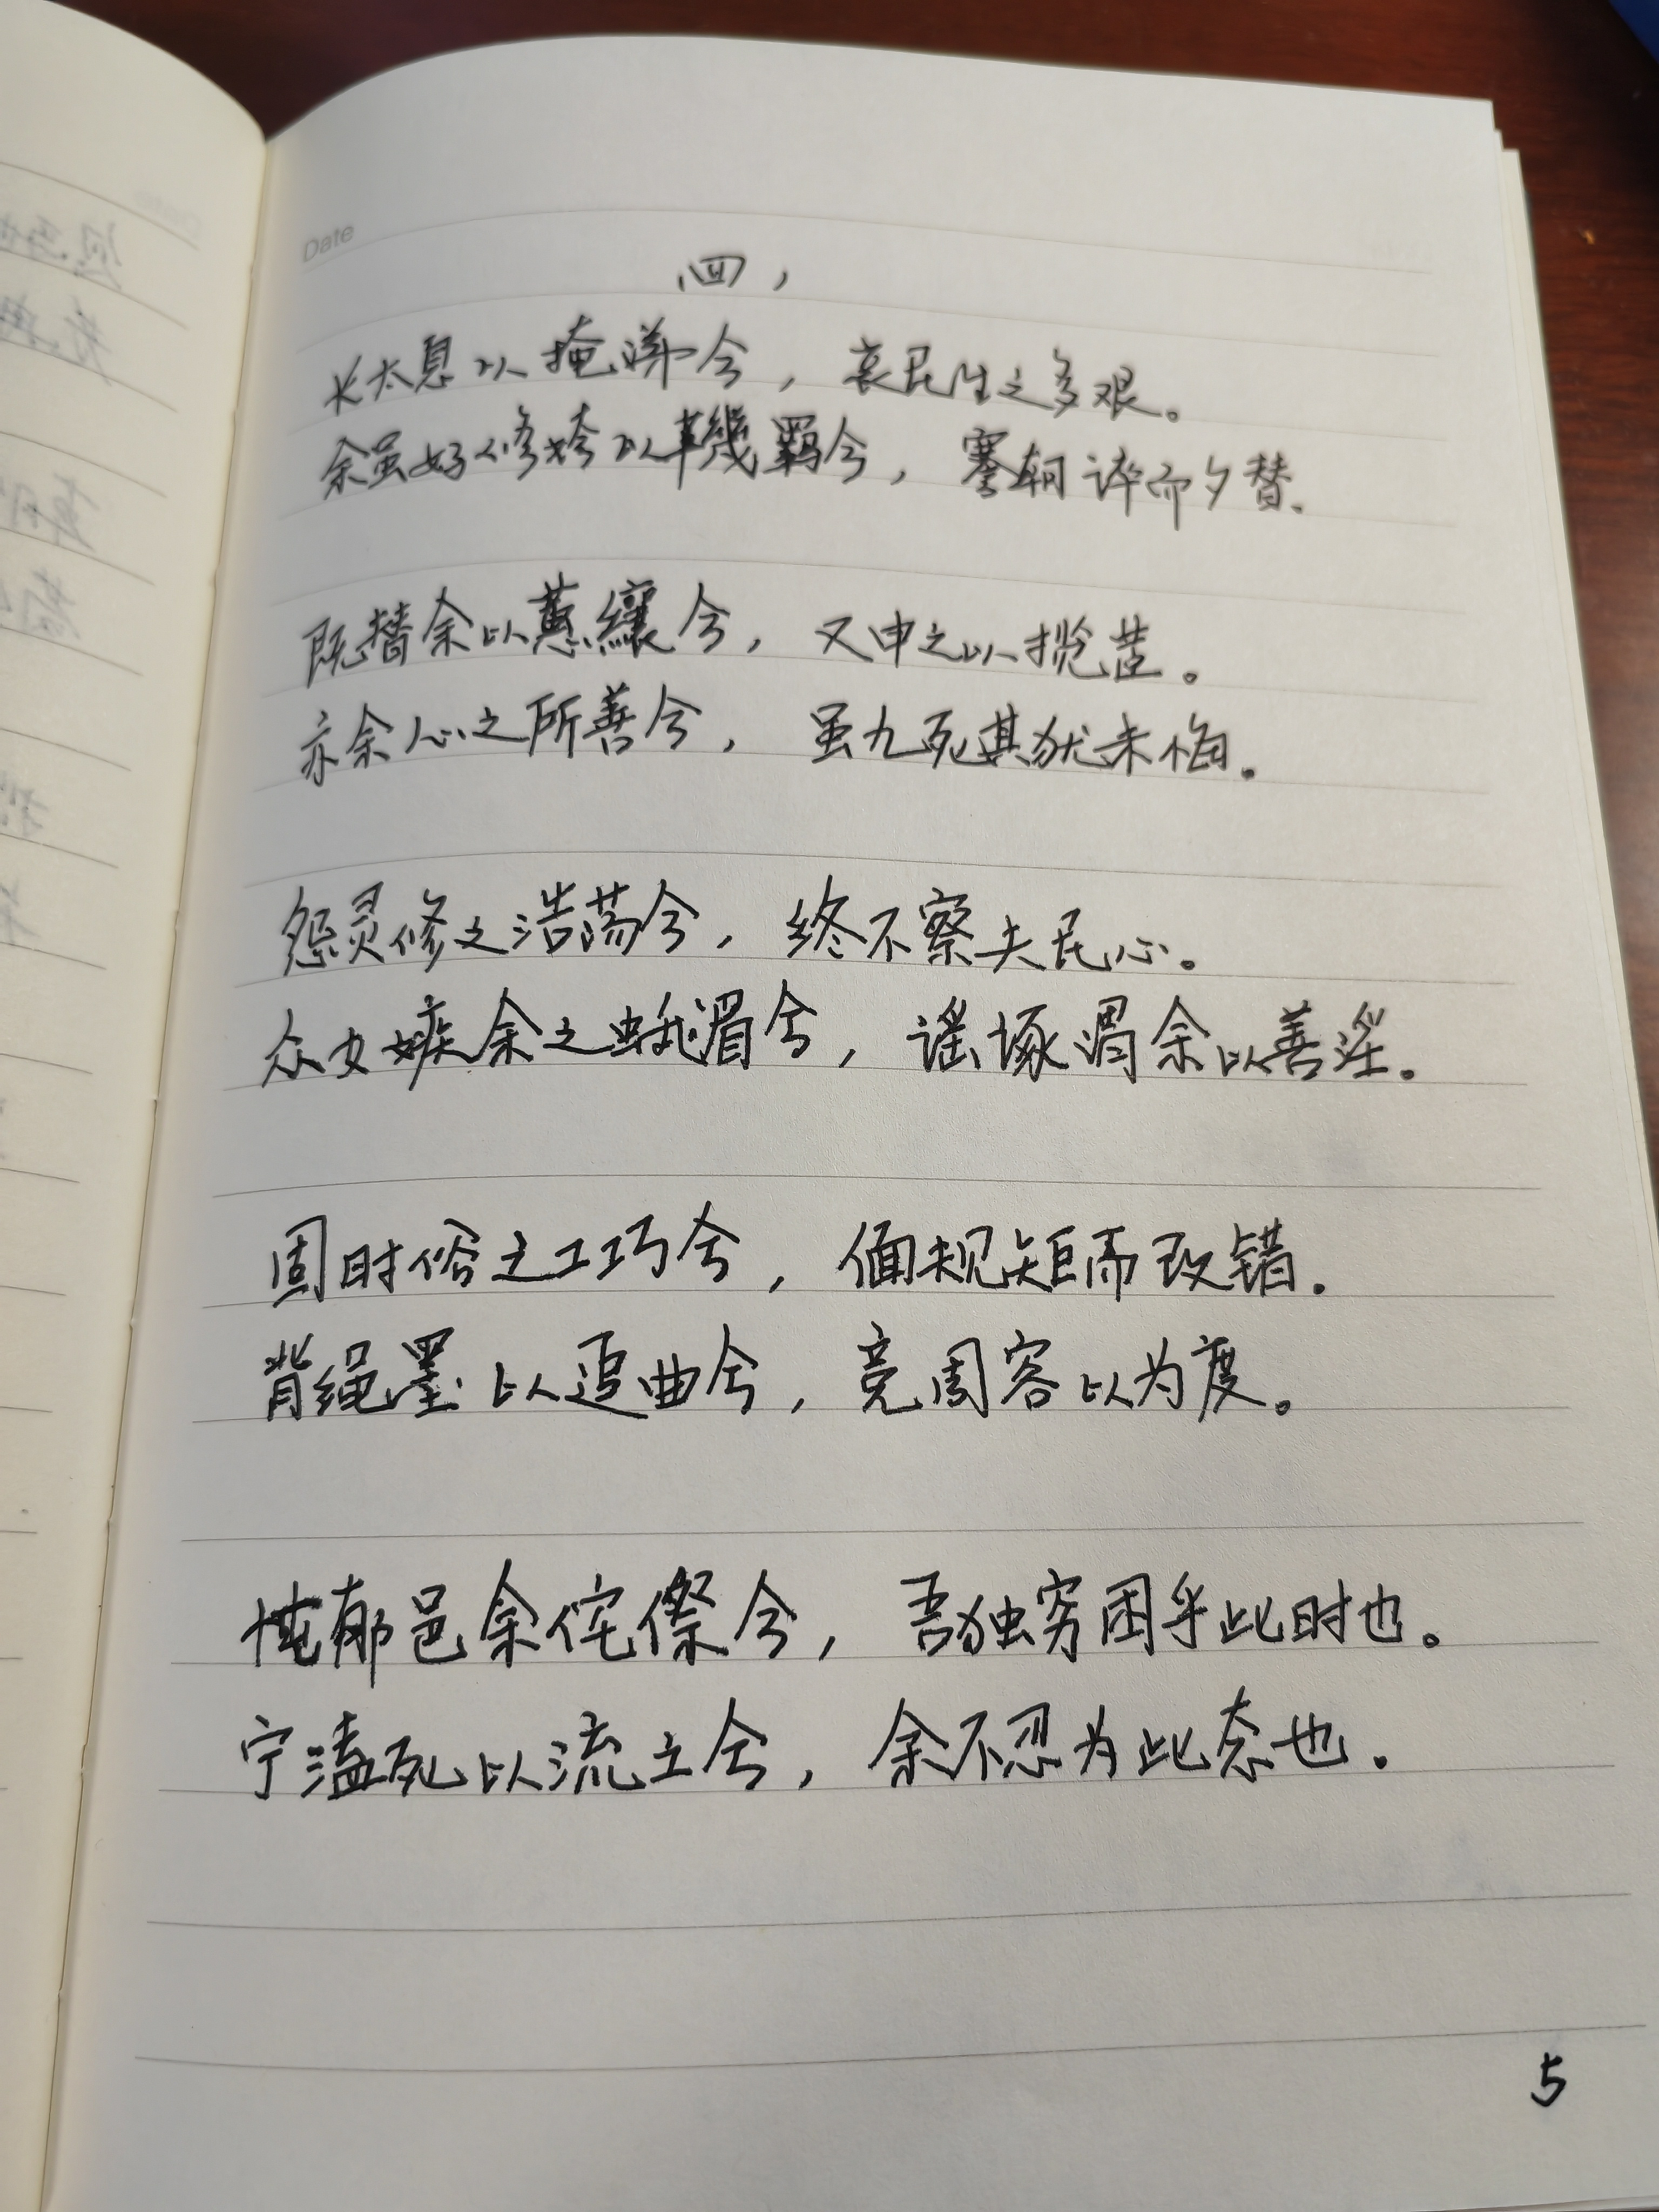 Date
四，
长太息以掩涕兮，哀民生之多艰。
余虽好修姱以鞿羁兮，謇朝谇而夕替。
既替余以蕙纕兮，又申之以揽茝。
亦余心之所善兮，虽九死其犹未悔。
怨灵修之浩荡兮，终不察夫民心。
众女嫉余之蛾眉兮，谣诼谓余以善淫。
固时俗之工巧兮，偭规矩而改错。
背绳墨以追曲兮，竞周容以为度。
忳郁邑余侘傺兮，吾独穷困乎此时也。
宁溘死以流亡兮，余不忍为此态也。
5